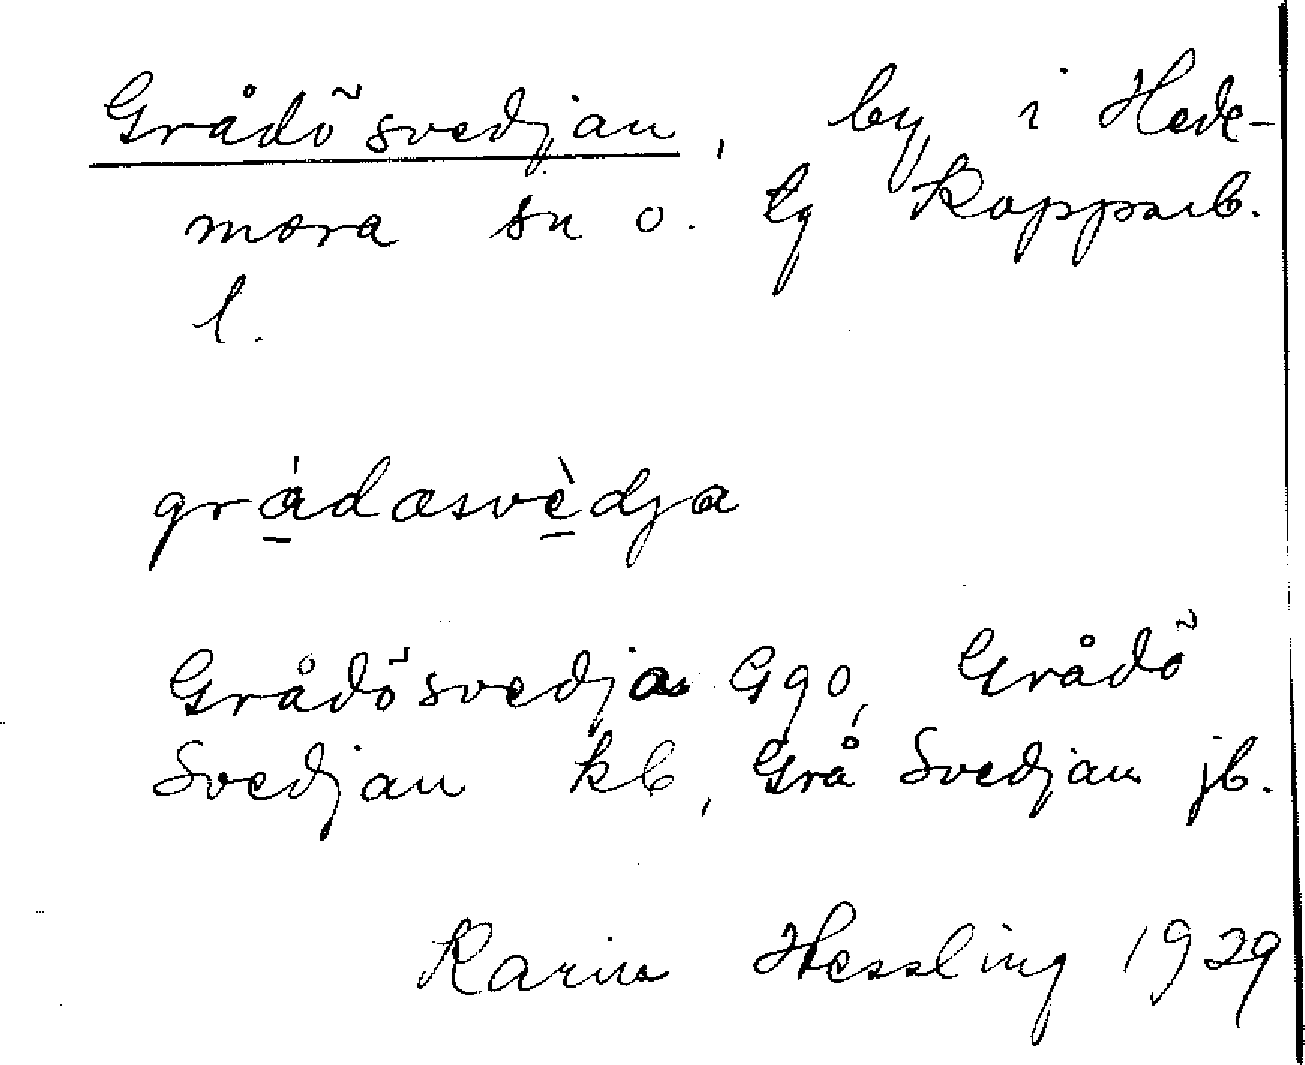 Grådösvedjan, by i Hede-
mora sn o. tg Kopparb.
l.
grådasvèdja
Grådösvedja Ggo, Grådö
Svedjan kb, Grå Svedjan jb.
Karin Hessling 1929